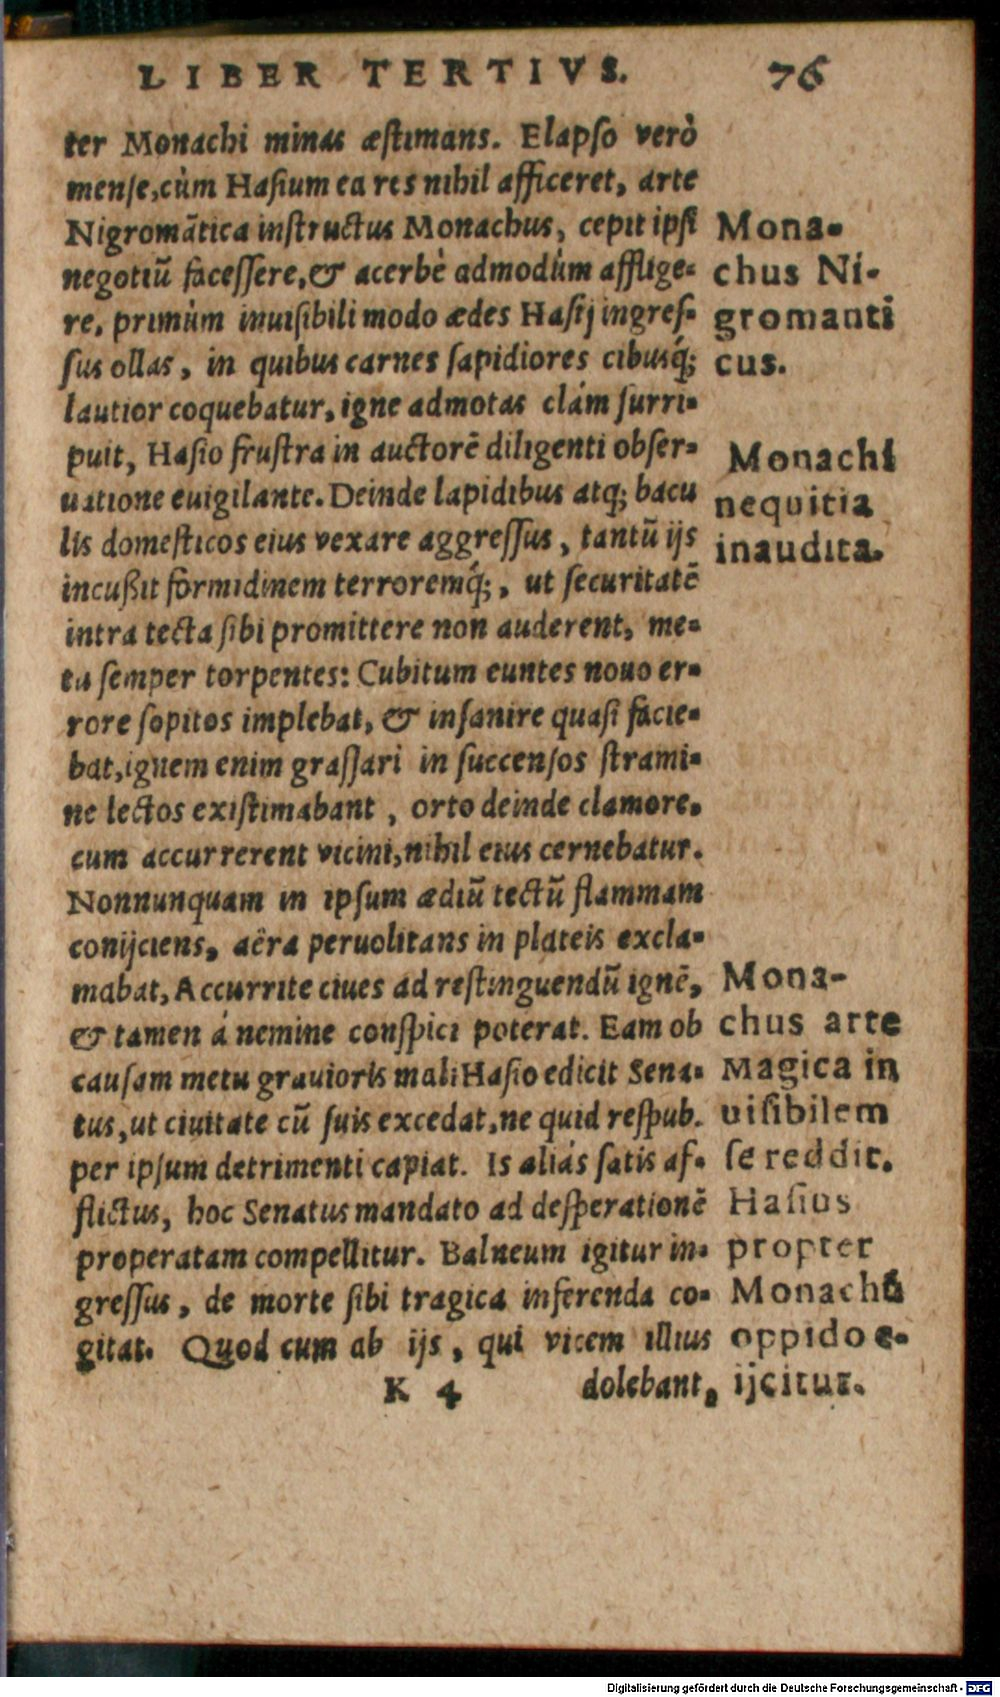 LIBER TERTIVS. 76
ter Monachi minas æstimans. Elapso verò
mense, cùm Hasium ea res nihil afficeret, arte
Nigromãtica instructus Monachus, cepit ipsi
negotiũ facessere, & acerbè admodùm afflige-
re, primùm inuisibili modo ædes Hasij ingres-
sus ollas, in quibus carnes sapidiores cibusq́;
lautior coquebatur, igne admotas clám surri-
puit, Hasio frustra in auctorẽ diligenti obser-
uatione euigilante. Deinde lapidibus atq; bacu
lis domesticos eius vexare aggressus, tantũ ijs
incußit formidinem terroremq́;, ut securitatẽ
intra tecta sibi promittere non auderent, me-
tu semper torpentes: Cubitum euntes nouo er-
rore sopitos implebat, & insanire quasi facie-
bat, ignem enim grassari in succensos strami-
ne lectos existimabant, orto deinde clamore.
cum accurrerent vicini, nihil eius cernebatur.
Nonnunquam in ipsum ædiũ tectũ flammam
conijciens, aëra peruolitans in plateis excla-
mabat, Accurrite ciues ad restinguendũ ignẽ,
& tamen á nemine conspici poterat. Eam ob
causam metu grauioris mali Hasio edicit Sena-
tus, ut ciuitate cũ suis excedat, ne quid respub.
per ipsum detrimenti capiat. Is aliás satis af-
flictus, hoc Senatus mandato ad desperationẽ
properatam compellitur. Balneum igitur in-
gressus, de morte sibi tragica inferenda co-
gitat. Quod cum ab ijs, qui vicem illius
K 4 dolebant,
Mona-
chus Ni-
gromanti
cus.
Monachi
nequitia
inaudita.
Mona-
chus arte
Magica in
uisibilem
se reddit.
Hasius
propter
Monachũ
oppido e-
ijcitur.
Digitalisierung gefördert durch die Deutsche Forschungsgemeinschaft - DFG